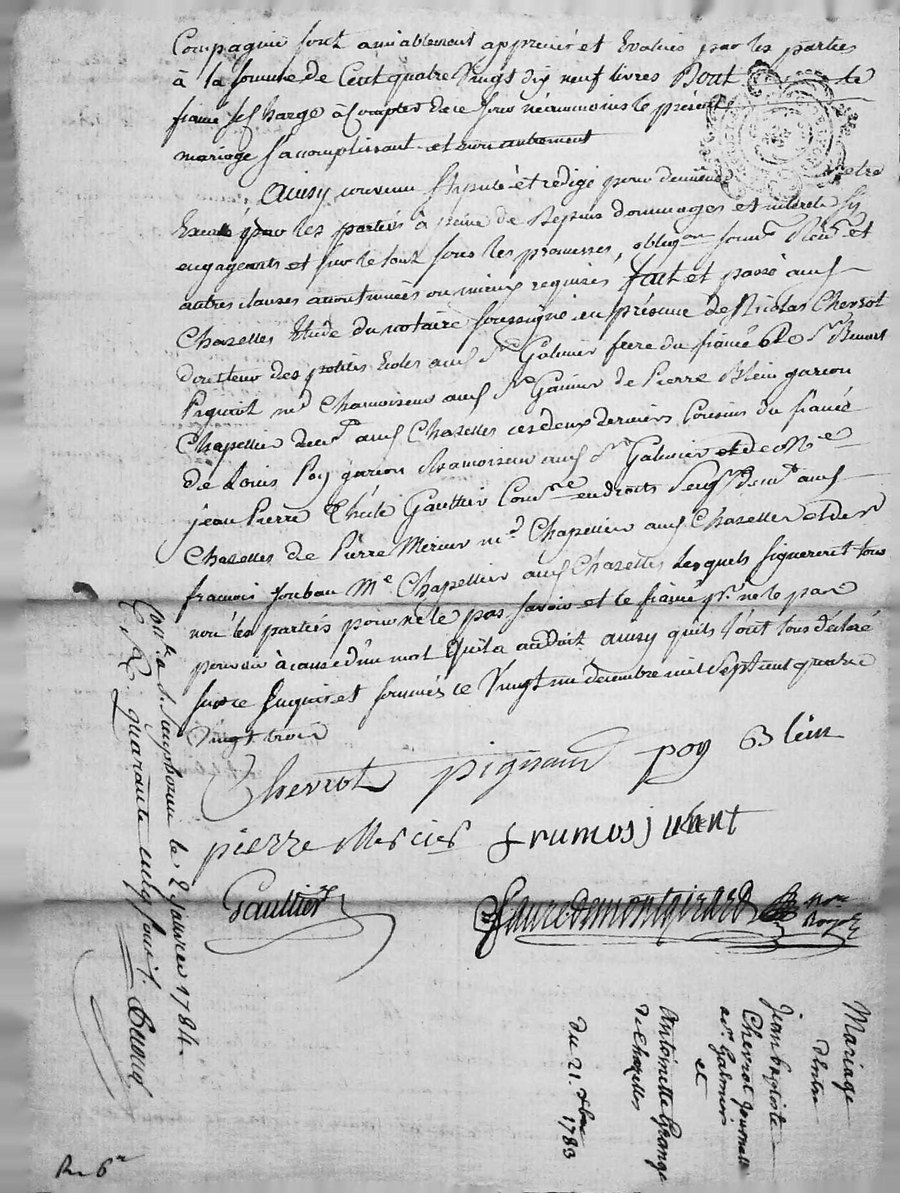 Compagnie sont amiablement appreciés et Evalués par les parties
à la somme de Cent quatre Vingt dix neuf livres Dont le
fiancé se Charge à Compter de ce jour néanmoins le présent
mariage s'accomplissant et non autrement
Ainsy convenu stipulé et redigé pour demeurer etre
Executé par les parties à peine de depens dommages et interets
engageants et sur le tout sous les promesses, obligon soumon Renon et
autres clauses accoutumées ou mieux requises fait et passé aud
Chazelles Etude du notaire soussigné en présence de Nicolas Chevrot
des petites Ecoles aud St Galmier frere du fiancé de Sr Benoit
Pignard md Chamoiseur aud St Galmier de Pierre Blein garcon
Chapellier demt aud Chazelles ces deux derniers Cousins du fiancé
de Louis Poy garcon Chamoiseur aud St Galmier et de Me
jean Pierre Gaultier en droits demt aud
Chazelles de Pierre Mercier md Chapellier aud Chazelles et de Sr
francois Me Chapellier aud Chazelles Lesquels signeront tous
non les parties pour ne le pas savoir et le fiancé pr ne le pas
pouvoir à cause d'un mal Qu'il a au doit ainsy qu'ils l'ont tous déclaré
sur ce Enquis et sommés ce Vingt un décembre mil sept cent quatre
Vingt trois
Chevrot pignard poy Blein
pierre Mercier
Gaultier faure demontgirard Nore Royal
Conlé à St Symphorien le 2 janvier 1784.
R quarante cinq sous
Mariage
d'entre
jean baptiste
Chevrot
de St Galmier
et
Antoinette Grange
de Chazelles
du 21. xbre
1783